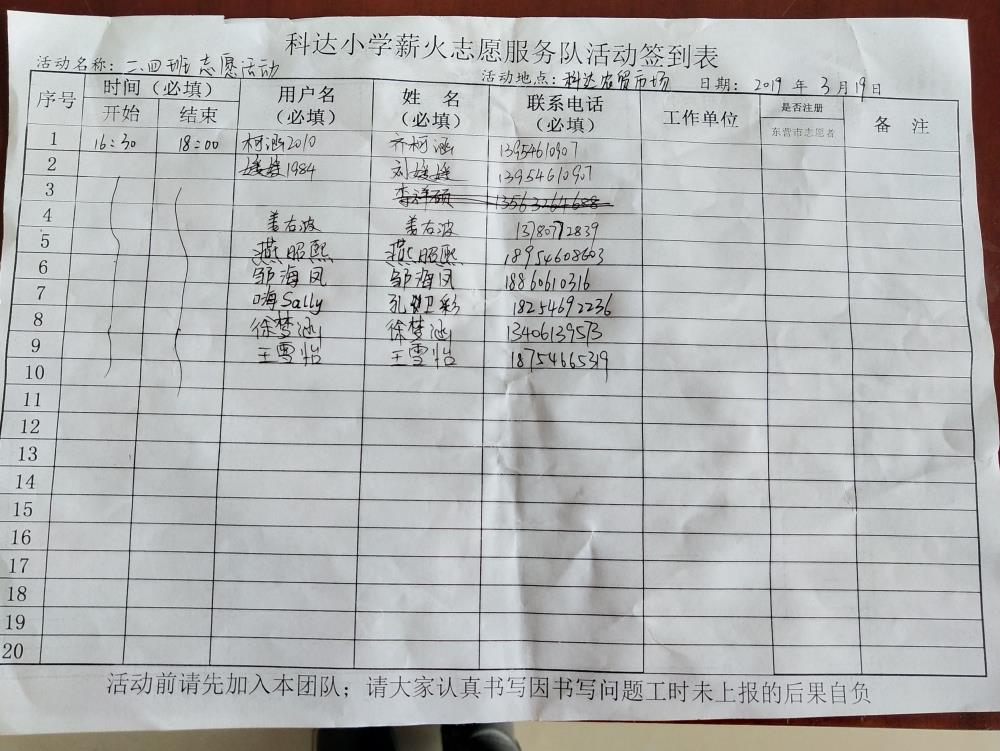 科达小学薪火志愿服务队活动签到表
活动名称：二.四班志愿活动 活动地点：科达农贸市场 日期：2019年3月19日
序号 时间（必填） 用户名（必填） 姓名（必填） 联系电话（必填） 工作单位 是否注册 备注
开始 结束 东营市志愿者
1 16:30 18:00 柯涵2010 齐柯涵 13954610907
2 媛媛1984 刘媛媛 13954610907
3 李洋硕 13563264688
4 姜右波 姜右波 13780772839
5 燕照熙 燕照熙 18954608603
6 邹海凤 邹海凤 18860610316
7 嗨Sally 孔卫彩 18254692236
8 徐梦涵 徐梦涵 13406139573
9 王雪怡 王雪怡 18754665319
10
11
12
13
14
15
16
17
18
19
20
活动前请先加入本团队；请大家认真书写因书写问题工时未上报的后果自负